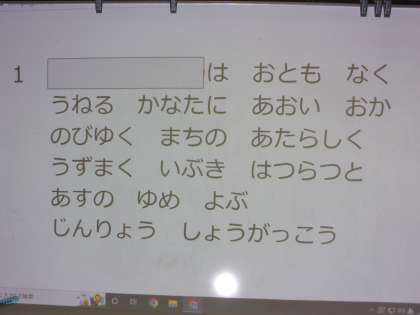 1 は おとも なく
うねる かなたに あおい おか
のびゆく まちの あたらしく
うずまく いぶき はつらつと
あすの ゆめ よぶ
じんりょう しょうがっこう